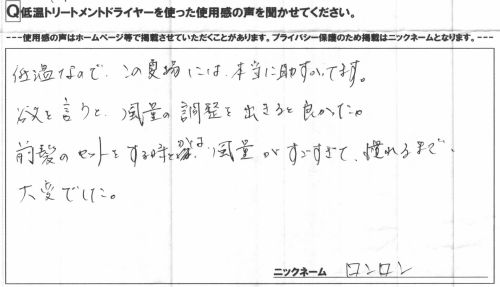 Q低温トリートメントドライヤーを使った使用感の声を聞かせてください。
----使用感の声はホームページ等で掲載させていただくことがあります。プライバシー保護のため掲載はニックネームとなります。---
低温なので、この夏場には、本当に助かってます。
欲を言うと、風量の調整を出きると良かった。
前髪のセットをする時とかは、風量がすごすぎて、慣れるまで、
大変でした。
ニックネーム ロンロン